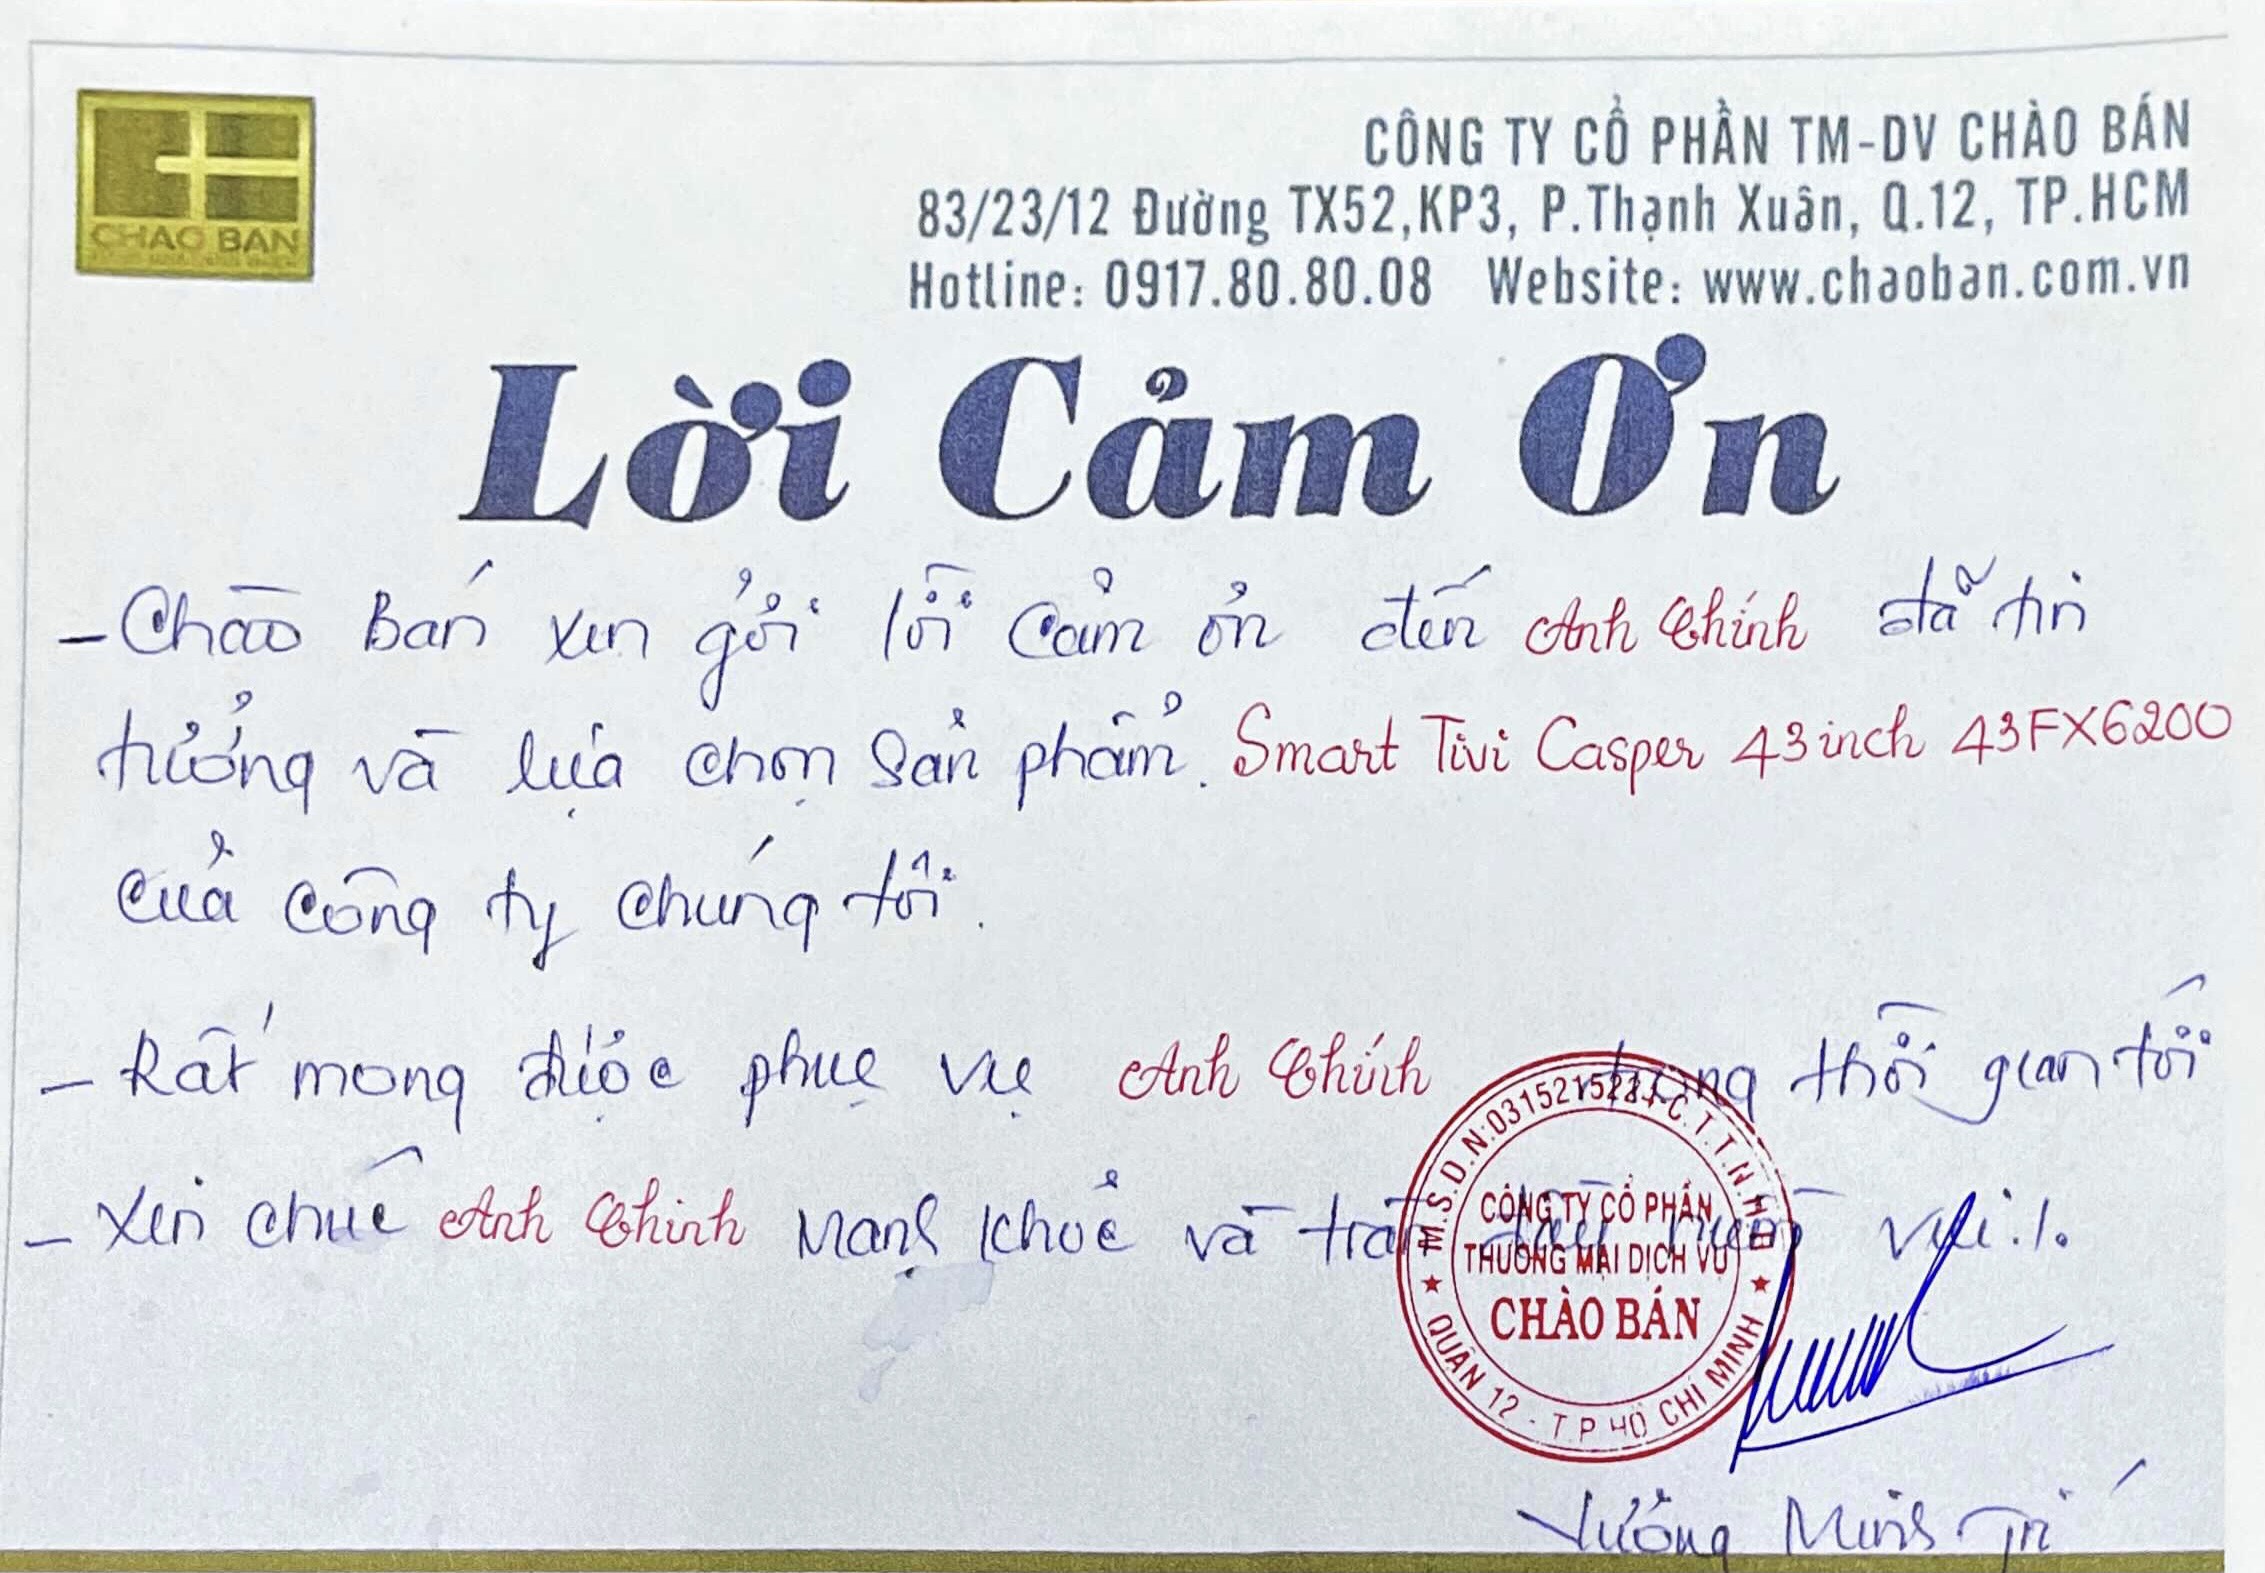 CHAO BAN
CÔNG TY CỔ PHẦN TM-DV CHÀO BÁN
83/23/12 Đường TX52,KP3, P.Thạnh Xuân, Q.12, TP.HCM
Hotline: 0917.80.80.08 Website: www.chaoban.com.vn
Lời Cảm Ơn
- Chào Bán xin gửi lời cảm ơn đến Anh Chính đã tin
tưởng và lựa chọn sản phẩm. Smart Tivi Casper 43inch 43FX6200
của công ty chúng tôi.
- Rất mong được phục vụ Anh Chính trong thời gian tới
- Xin chúc Anh Chính Mạnh khoẻ và tràn đầy niềm vui./.
M.S.D.N:0315215221-C.T.T.N.H.H
CÔNG TY CỔ PHẦN
THƯƠNG MẠI DỊCH VỤ
CHÀO BÁN
QUẬN 12 - T.P HỒ CHÍ MINH
Vương Minh Trí